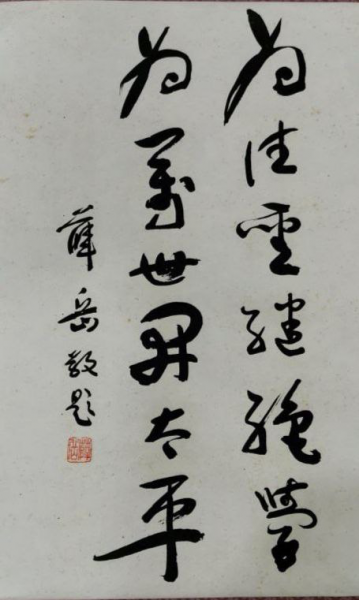 為往聖繼絕學
為萬世開太平
薛岳敬題